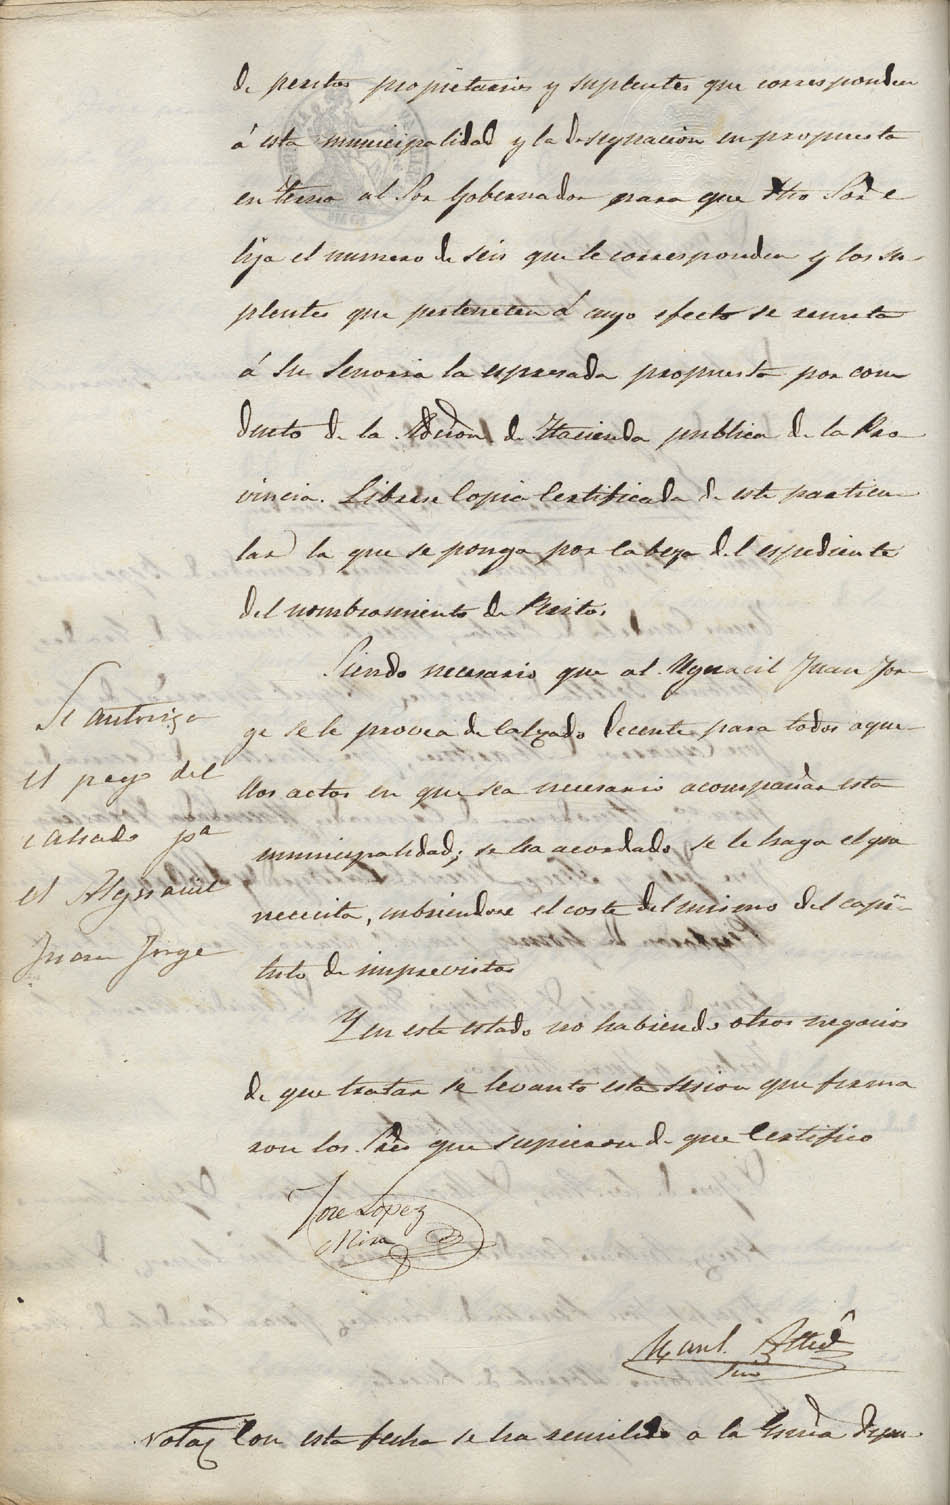 de peritos propietarios y suplentes que corresponden
á esta municipalidad y la designacion en propuesta
en terna al Sor Gobernador para que dho Sor e
lija el numero de seis que le corresponden y los su-
plentes que pertenecen á cuyo efecto se remita
á Su Senoria la espresada propuesta por con
ducto de la Admon de Hacienda publica de la Pro
vincia. Librese Copia Certificada de este particu
lar la que se ponga por cabeza del espediente
del nombramiento de Peritos
Siendo necesario que al Alguacil Juan Jor-
ge se le provea de calzado decente para todos aque-
llos actos en que sea necesario acompañar esta
municipalidad; se ha acordado se le haga el que
nececita, cubriendose el coste del mismo del capi-
tulo de imprevistos
Se autoriza
el pago del
calsado pa
el Alguacil
Juan Jorge
Y en este estado no habiendo otros negocios
de que tratar se levanto esta sesion que firma
ron los Sres que supieron de que Certifico
Jose Lopez
Mira
Manl.
Srio
Nota Con esta fecha se ha remitido a la